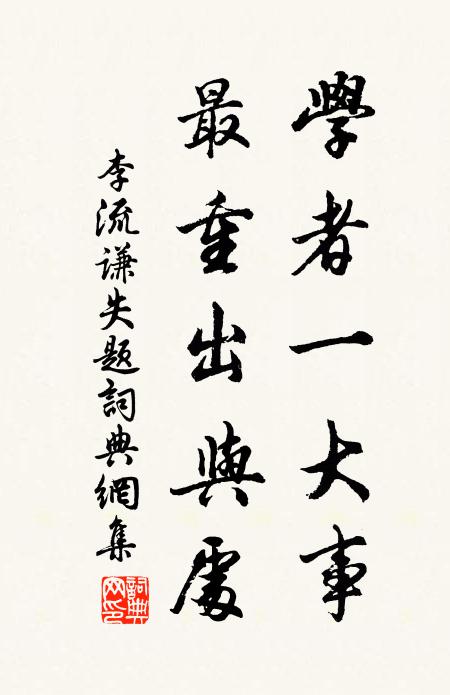 學者一大事
最重出與處
李流謙失題詞典網集
詞典網印